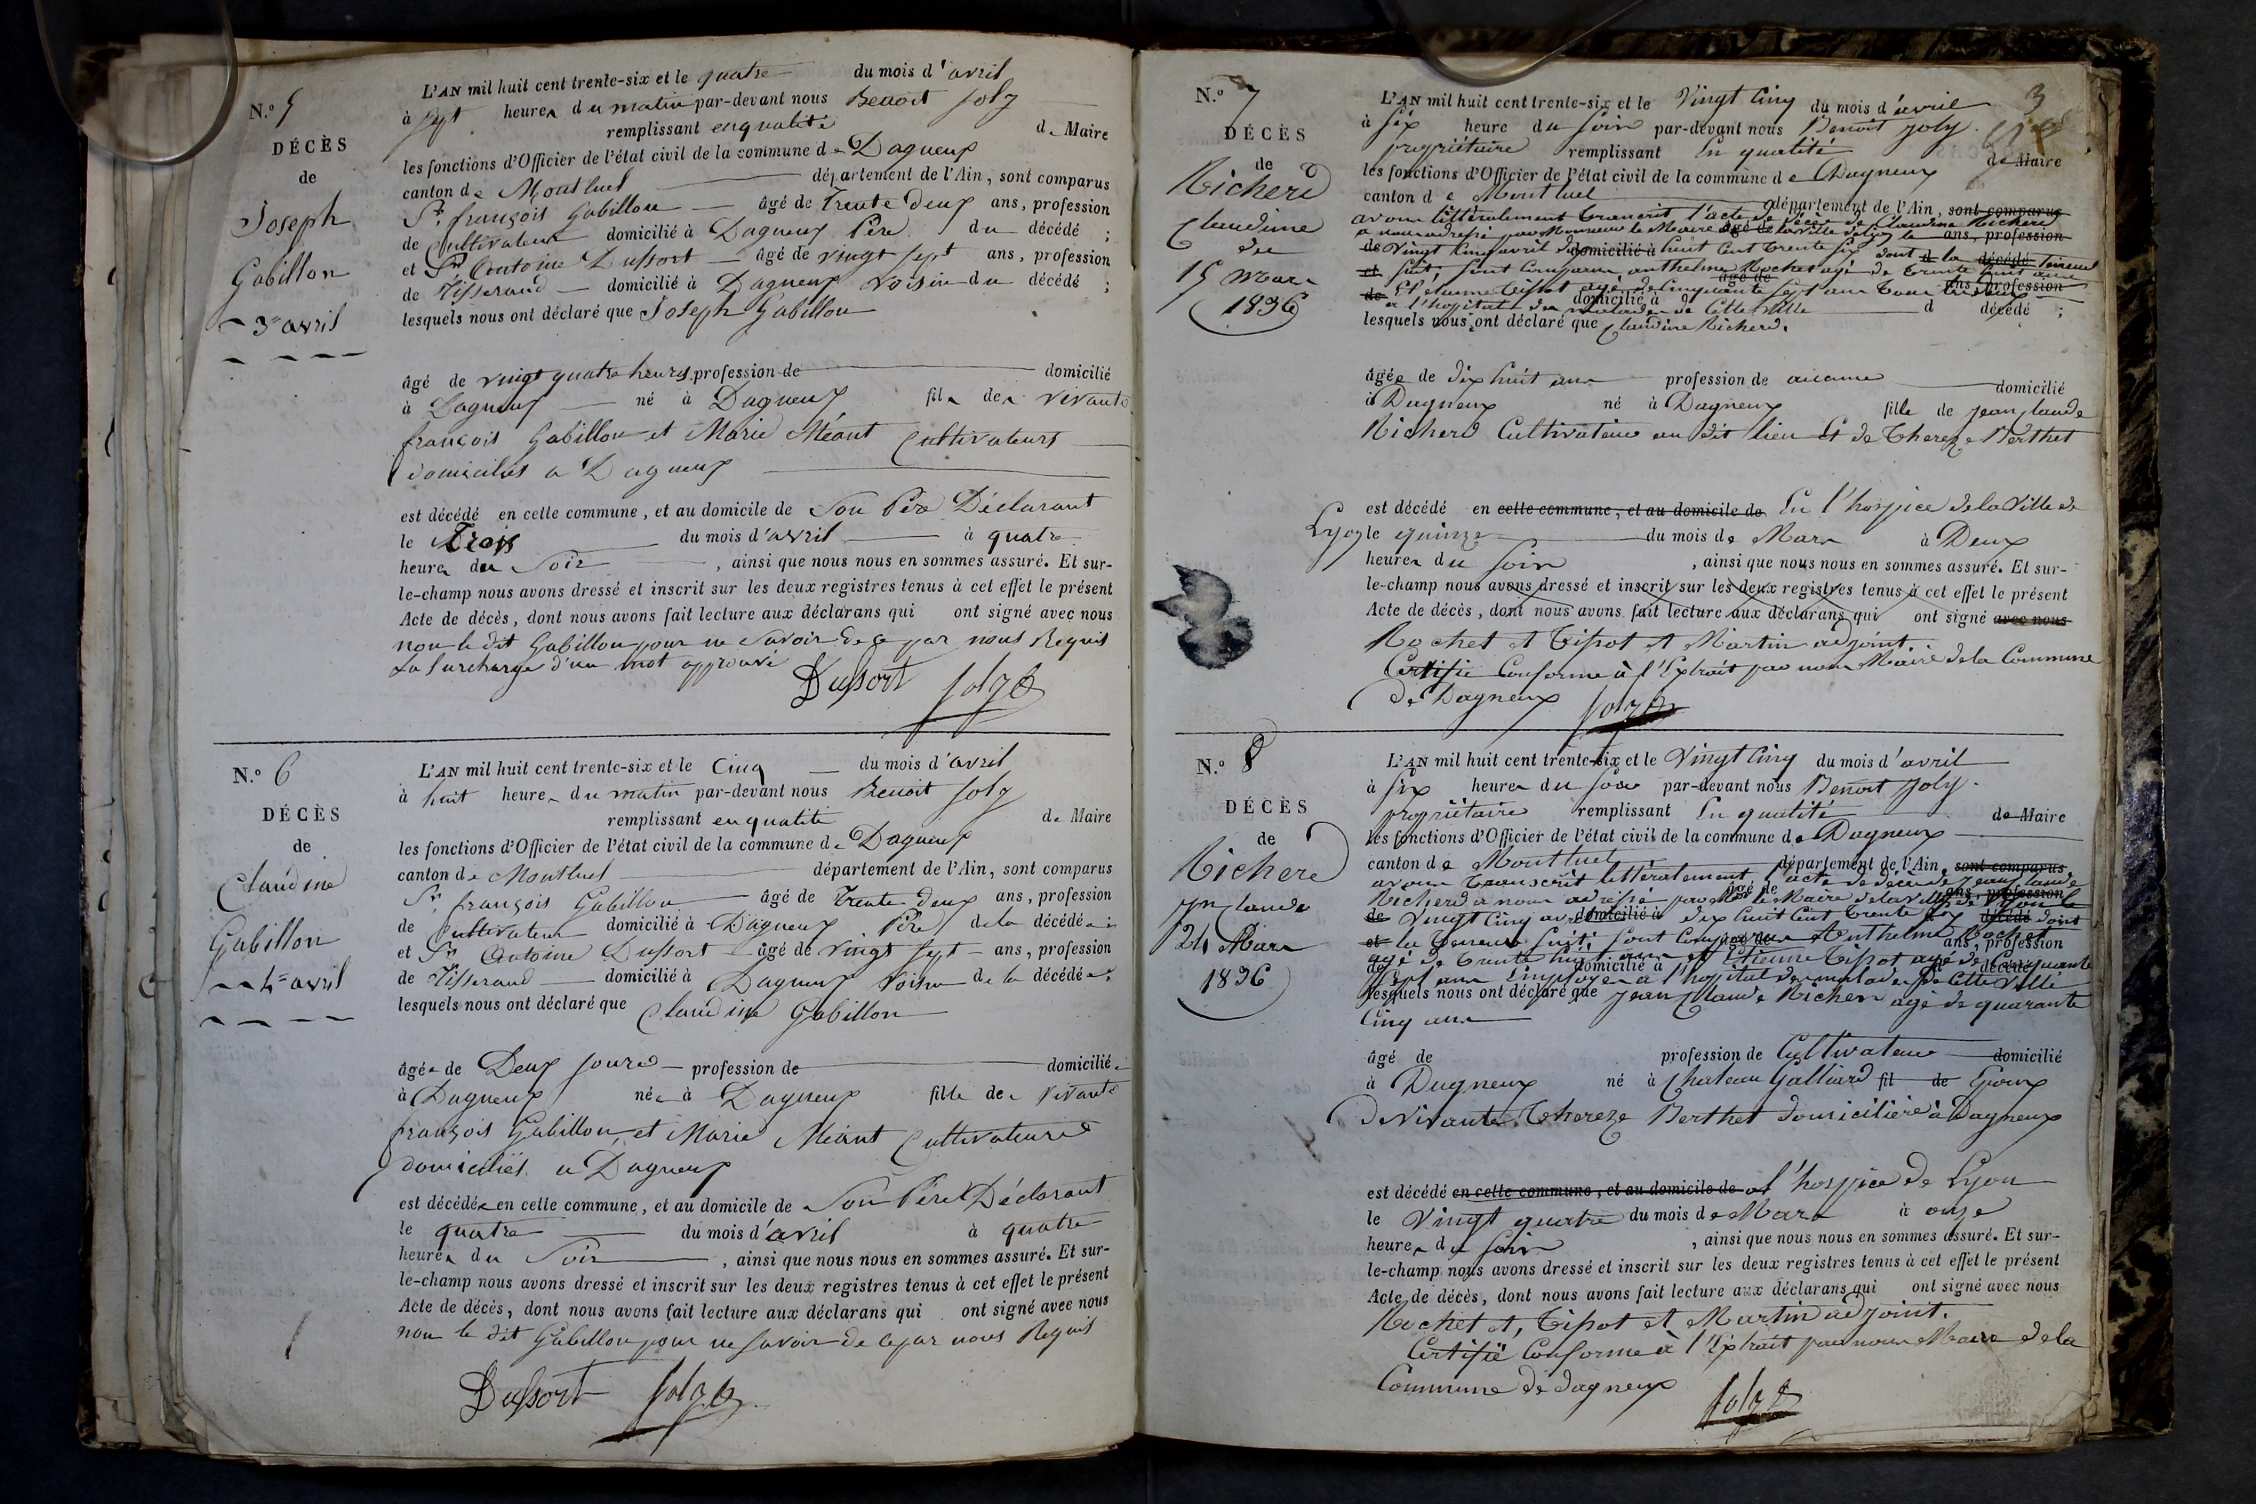 N.º 5
DÉCÈS
de
Joseph
Gabillon
3 avril
L'AN mil huit cent trente-six et le quatre du mois d'avril
à sept heures du matin par-devant nous Benoit Joly
remplissant en qualité de Maire
les fonctions d'Officier de l'état civil de la commune de Dagneux
canton de Montluel département de l'Ain, sont comparus
Sr. françois Gabillon âgé de Trente Deux ans, profession
de Cultivateur domicilié à Dagneux Père du décédé ;
et Sr. Antoine Dussort âgé de vingt sept ans, profession
de Tisserand domicilié à Dagneux Voisin du décédé ;
lesquels nous ont déclaré que Joseph Gabillon
âgé de vingt quatre heures profession de domicilié
à Dagneux né à Dagneux fils des vivants
françois Gabillon et Marie Méant Cultivateurs
domiciliés a Dagneux
est décédé en cette commune, et au domicile de Son Père Déclarant
le Trois du mois d'avril à quatre
heures du Soir , ainsi que nous nous en sommes assuré. Et sur-
le-champ nous avons dressé et inscrit sur les deux registres tenus à cet effet le présent
Acte de décès, dont nous avons fait lecture aux déclarans qui ont signé avec nous
non le dit Gabillon pour ne Savoir de ce par nous Requis
La Surcharge d'un mot approuvé
Dussort Joly
N.º 6
DÉCÈS
de
Claudine
Gabillon
4 avril
L'AN mil huit cent trente-six et le Cinq du mois d'avril
à huit heures du matin par-devant nous Benoit Joly
remplissant en qualité de Maire
les fonctions d'Officier de l'état civil de la commune de Dagneux
canton de Montluel département de l'Ain, sont comparus
Sr. françois Gabillon âgé de Trente Deux ans, profession
de Cultivateur domicilié à Dagneux Père de la décédée ;
et Sr. Antoine Dussort âgé de vingt sept ans, profession
de Tisserand domicilié à Dagneux Voisin de la décédée ;
lesquels nous ont déclaré que Claudine Gabillon
âgée de Deux jours profession de domiciliée
à Dagneux née à Dagneux fille des vivants
françois Gabillon et Marie Méant Cultivateurs
domiciliés a Dagneux
est décédée en cette commune, et au domicile de Son Père Déclarant
le quatre du mois d'avril à quatre
heures du Soir , ainsi que nous nous en sommes assuré. Et sur-
le-champ nous avons dressé et inscrit sur les deux registres tenus à cet effet le présent
Acte de décès, dont nous avons fait lecture aux déclarans qui ont signé avec nous
non le dit Gabillon pour ne savoir de ce par nous Requis
Dussort Joly
3
N.º 7
DÉCÈS
de
Richerd
Claudine
du
15 Mars
1836
L'AN mil huit cent trente-six et le Vingt Cinq du mois d'avril
à six heure du soir par-devant nous Benoit Joly.
propriétaire remplissant En qualité de Maire
les fonctions d'Officier de l'état civil de la commune de Dagneux
canton de Montluel département de l'Ain, sont comparus
avons littéralement transcrit l'acte de décès de Claudine Richerd
a nous adressé par Monsieur le Maire de la ville de Lyon le âgé de ans, profession
de vingt Cinq avril domicilié à huit Cent trente six dont d la décédé teneur
et suit, sont Comparus anthelme Rochet agé de trente huit ans
âgé de ans, profession
de Et etienne Tissot agé de Cinquante sept ans tous
a l'hopital des malades de Cette ville domicilié à d décédé ;
lesquels nous ont déclaré que Claudine Richerd.
âgée de dix huit ans profession de aucune domicilié
à Dagneux né à Dagneux fille de jean Claude
Richerd Cultivateur au dit lieu Et de Thereze Berthet
est décédé en cette commune, et au domicile de En l'hospice de la Ville de
Lyon le quinze du mois de Mars à Deux
heures du soir , ainsi que nous nous en sommes assuré. Et sur-
le-champ nous avons dressé et inscrit sur les deux registres tenus à cet effet le présent
Acte de décès, dont nous avons fait lecture aux déclarans qui ont signé avec nous
Rochet et Tissot et Martin adjoint.
Certifié Conforme à l'Extrait par nous Maire de la Commune
de Dagneux Joly
N.º 8
DÉCÈS
de
Richerd
Jn Claude
24 Mars
1836
L'AN mil huit cent trente-six et le Vingt Cinq du mois d'avril
à six heures du soir par-devant nous Benoit Joly.
propriétaire remplissant En qualité de Maire
les fonctions d'Officier de l'état civil de la commune de Dagneux
canton de Montluel département de l'Ain, sont comparus
avons transcrit littéralement l'acte de décès de jean Claude
Richerd a nous adressé par Mr le Maire de la ville de Lyon le âgé de ans, profession
de vingt Cinq avril domicilié à dix huit Cent trente six décédé dont
et la teneur suit, sont Comparus Anthelme Rochet
âgé de ans, profession
agé de trente huit ans et Etienne Tissot agé de Cinquante
de domicilié à d décédé
sept ans Employés a l'hopital des malades de Cette ville
lesquels nous ont déclaré que jean Claude Richerd agé de quarante
Cinq ans
âgé de profession de Cultivateur domicilié
à Dagneux né à Chateau Galliard fil de Epoux
de vivante Thereze Berthet domicilière à Dagneux
est décédé en cette commune, et au domicile de a l'hospice de Lyon
le Vingt quatre du mois de Mars à onze
heures du soir , ainsi que nous nous en sommes assuré. Et sur-
le-champ nous avons dressé et inscrit sur les deux registres tenus à cet effet le présent
Acte de décès, dont nous avons fait lecture aux déclarans qui ont signé avec nous
Rochet et, Tissot et Martin adjoint.
Certifié Conforme à l'Extrait par nous Maire de la
Commune de dagneux Joly